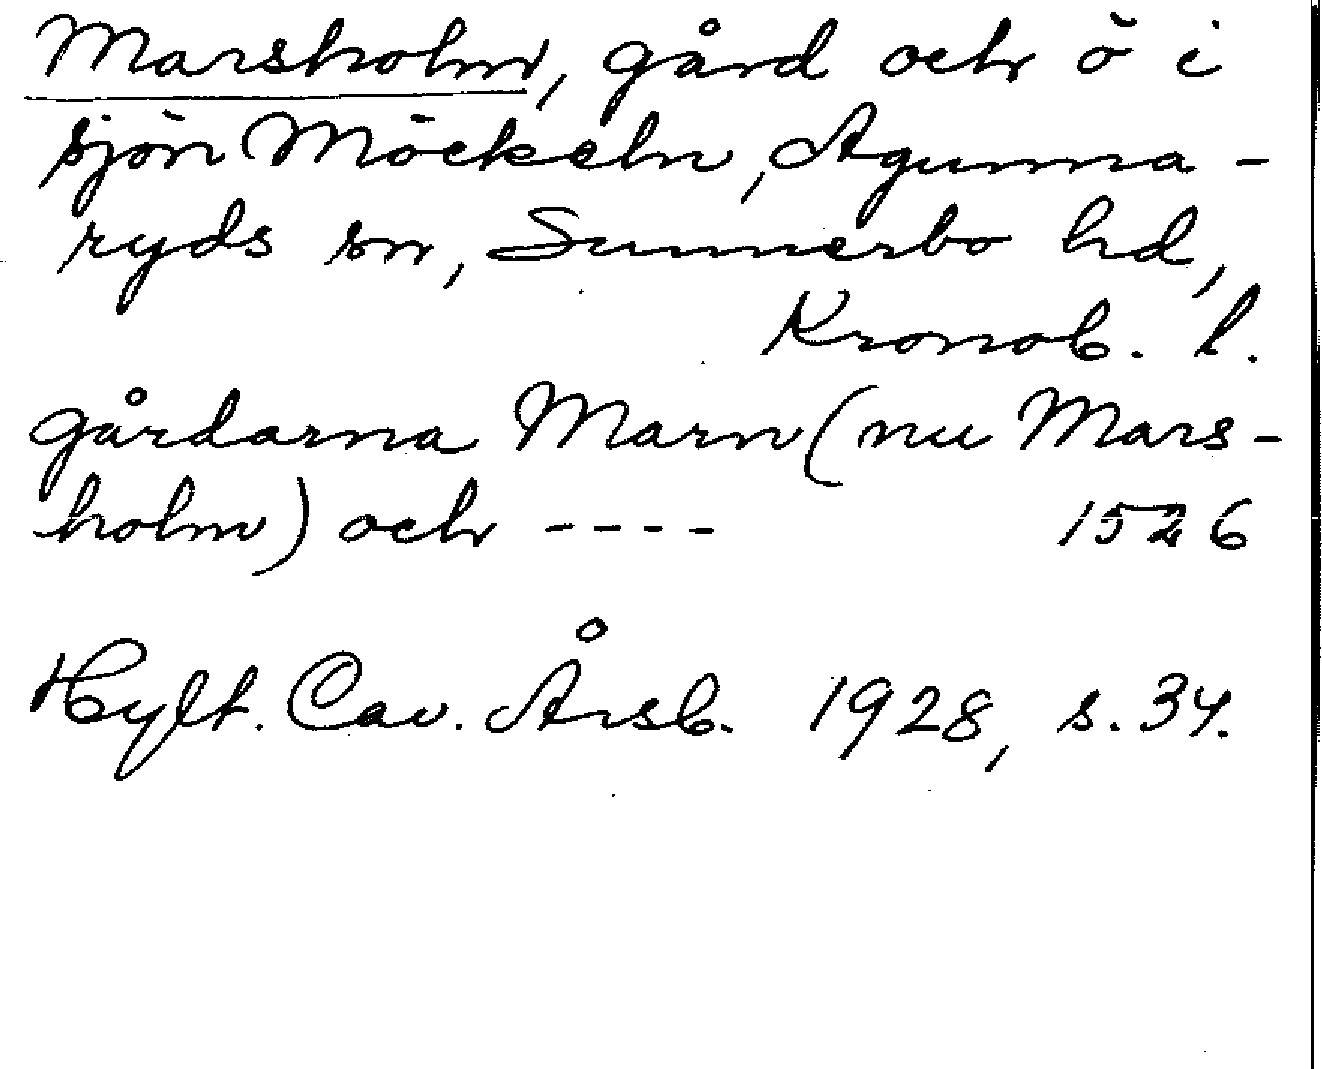 Marsholm, gård och ö i
sjön Möckeln, Agunna-
ryds sn, Sunnerbo hd,
Kronob. l.
gårdarna Marn (nu Mars-
holm) och ---- 1526
Hylt. Cav. Årsb. 1928, s. 34.